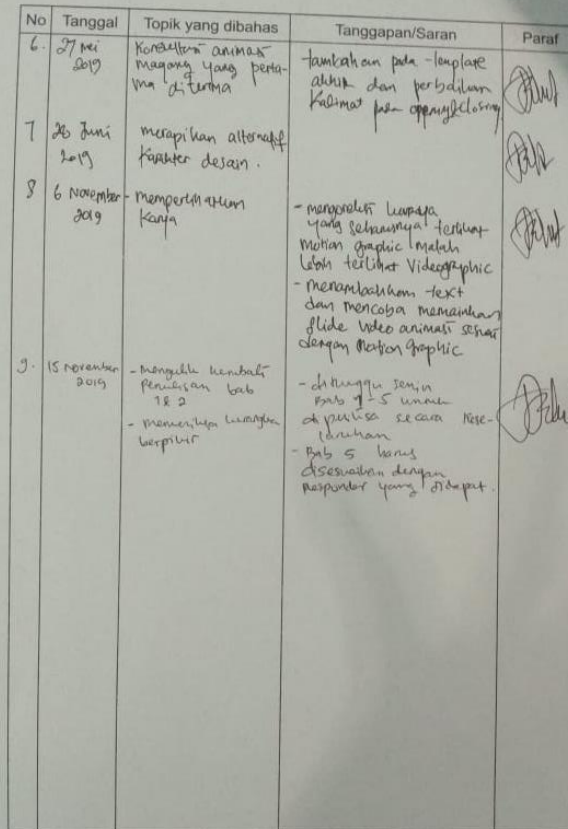 No Tanggal Topik yang dibahas Tanggapan/Saran Paraf
6. 27 Mei
2019
Konsultasi animasi
magang yang perta-
ma diterima
tambahan pada template
akhir dan perbaikan
kalimat pada opening&closing
7 26 Juni
2019
merapikan alternatif
karakter desain.
8 6 November
2019
- memperlihatkan
karya
- mengoreksi karya
yang seharusnya terlihat
motion graphic malah
lebih terlihat videographic
- menambahkan text
dan mencoba memainkan
slide video animasi sesuai
dengan motion graphic
9. 15 november
2019
- kembali
penulisan bab
1 & 2
- memeriksa kerangka
berpikir
- ditunggu senin
Bab 1-5 untuk
diperiksa secara kese-
luruhan
- Bab 5 harus
disesuaikan dengan
responder yang didapat.